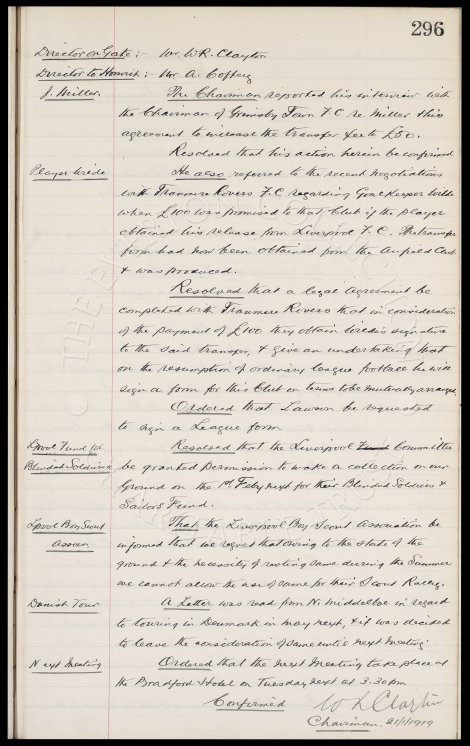 296
Director on Gate :- Mr. W.R. Clayton
Director to Norwich :- Mr A. Coffey
J. Miller. The Chairman reported his interview with
the Chairman of Grimsby Town F.C re Miller & his
agreement to increase the transfer fee to £50.
Resolved that his action herein be confirmed
Player He also referred to the recent negotiations
with Tranmere Rovers F.C regarding Goal Keeper
when £100 was promised to that Club if the player
obtained his release from Liverpool F.C. The transfer
form had now been obtained from the Anfield Club
& was produced.
Resolved that a legal agreement be
completed with Tranmere Rovers that in consideration
of the payment of £100 they obtain signature
to the said transfer, & give an undertaking that
on the resumption of ordinary league football he will
sign a form for this Club on terms to be mutually arranged.
Ordered that Lawson be requested
to sign a League form
L'pool Fund for Resolved that the Liverpool Fund Committee
Blinded Soldiers be granted permission to make a collection on our
Ground on the 1st Feby next for their Blinded Soldiers &
Sailors Fund.
L'pool Boy Scout That the Liverpool Boy Scout Association be
Assocn. informed that we regret that owing to the state of the
ground & the necessity of resting same during the Summer
we cannot allow the use of same for their Scout Rally.
Danish Tour A Letter was read from N. Middelboe in regard
to touring in Denmark in May next, & it was decided
to leave the consideration of same until next meeting
Next Meeting Ordered that the next Meeting take place at
the Bradford Hotel on Tuesday next at 3.30pm
Confirmed W R Clayton
Chairman. 21/1/1919